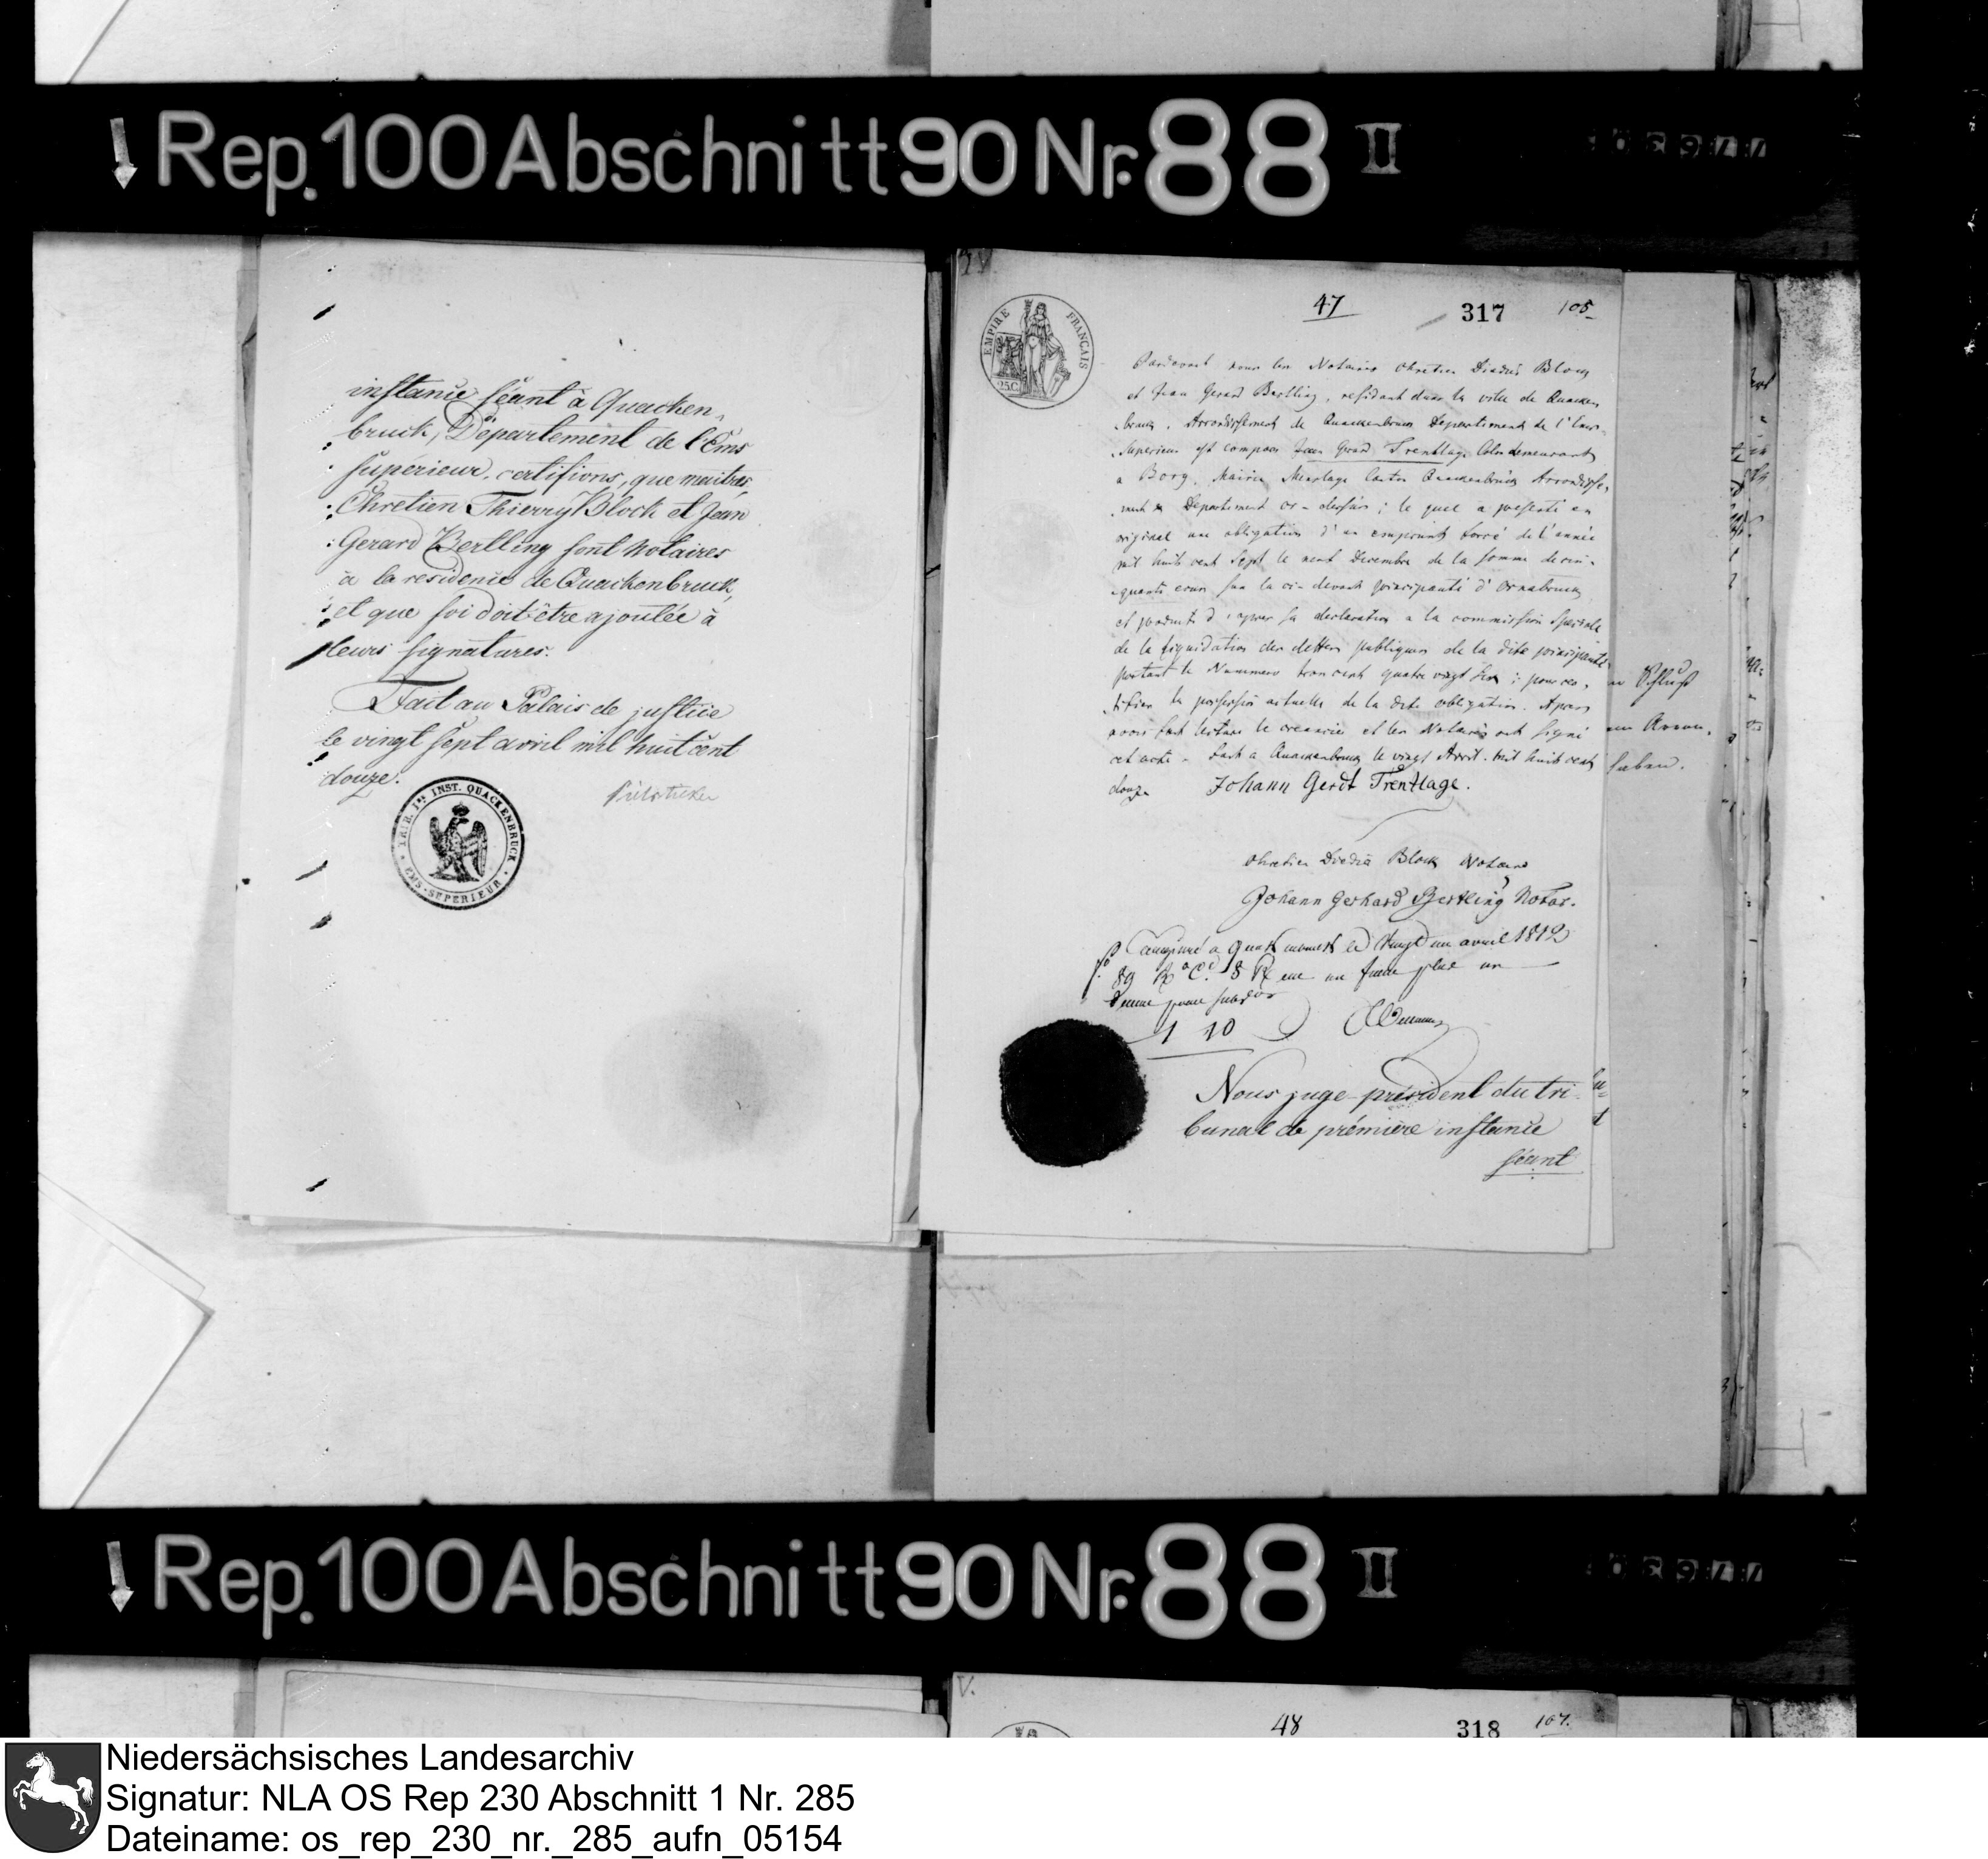 Rep. 100 Abschnitt 90 Nr. 88 II
instance séant à Quacken,
bruck, Département de l'Ems
supérieur, certifions, que maitres
Chretien Thierry Block et Jean
Gerard Bertling sont Notaires
à la residence de Quackenbruck,
et que foi doit être ajoutée à
leurs signatures.
Fait au Palais de justice
le vingt sept avril mil huit cent
douze.
TRIB. 1re INST. QUACKENBRUCK
EMS-SUPERIEUR
EMPIRE FRANÇAIS
25 C.
47 317 105
Pardevant nous les Notaires Chretien Diedric Block
et Jean Gerard Bertling, residant dans la ville de Quacken,
bruck, Arrondissement de Quackenbruck Departement de l'Ems-
Superieur est comparu Jean Gerard Trenttage Colon demeurant
a Borg, Mairie Menslage Canton Quackenbruck Arrondisse,
ment & Departement ci-dessus; le quel a presenté en
original une obligation d'un emprunt forcé de l'année
mil huit cent sept le neuf Decembre de la somme de cin-
quante ecus sur la ci-devant principauté d'Osnabruck
et produite d'apres sa declaration a la commission speciale
de la liquidation des dettes publiques de la dite principauté
portant le Numero trois cent quatre vingt six; pour cer,
tifier la possession actuelle de la dite obligation. Apres
avoir fait lecture le creancier et les Notaires ont signé
cet acte. Fait a Quackenbruck le vingt Avril mil huit cent
douze Johann Gerdt Trenttage.
Chretien Diedric Block Notaire
Johann Gerhard Bertling Notar.
vingt un avril 1812
fo 89
1 10
Nous juge-président du tri-
bunal de prémière instance
séant
Rep. 100 Abschnitt 90 Nr. 88 II
V.
48 318 107.
Niedersächsisches Landesarchiv
Signatur: NLA OS Rep 230 Abschnitt 1 Nr. 285
Dateiname: os_rep_230_nr._285_aufn_05154